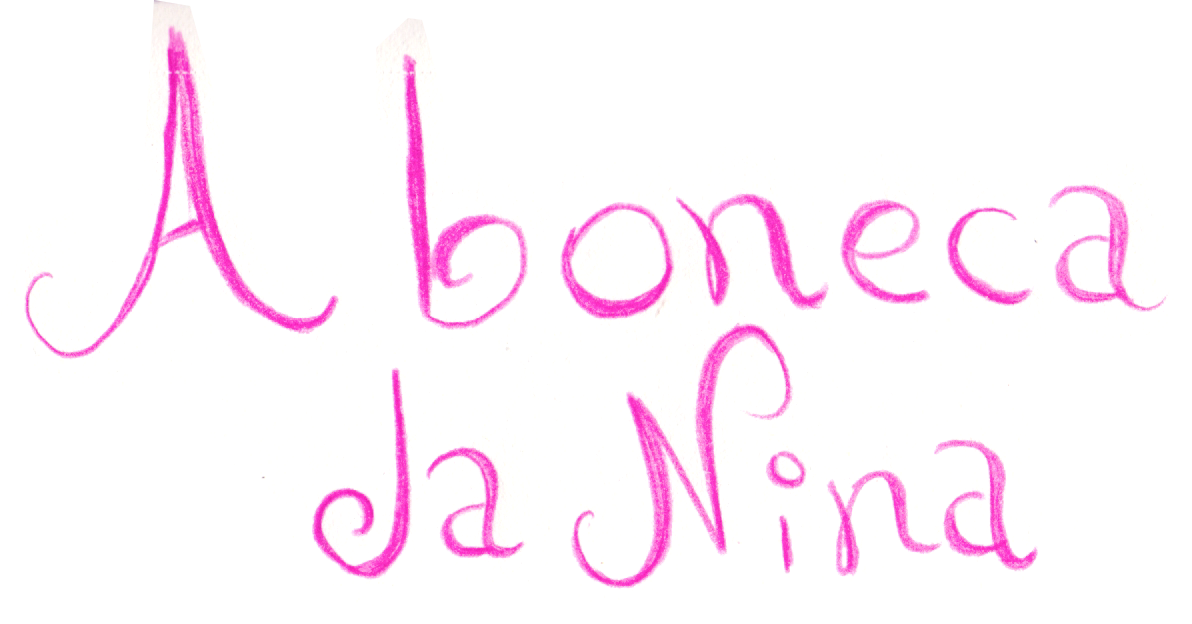 A boneca
da Nina